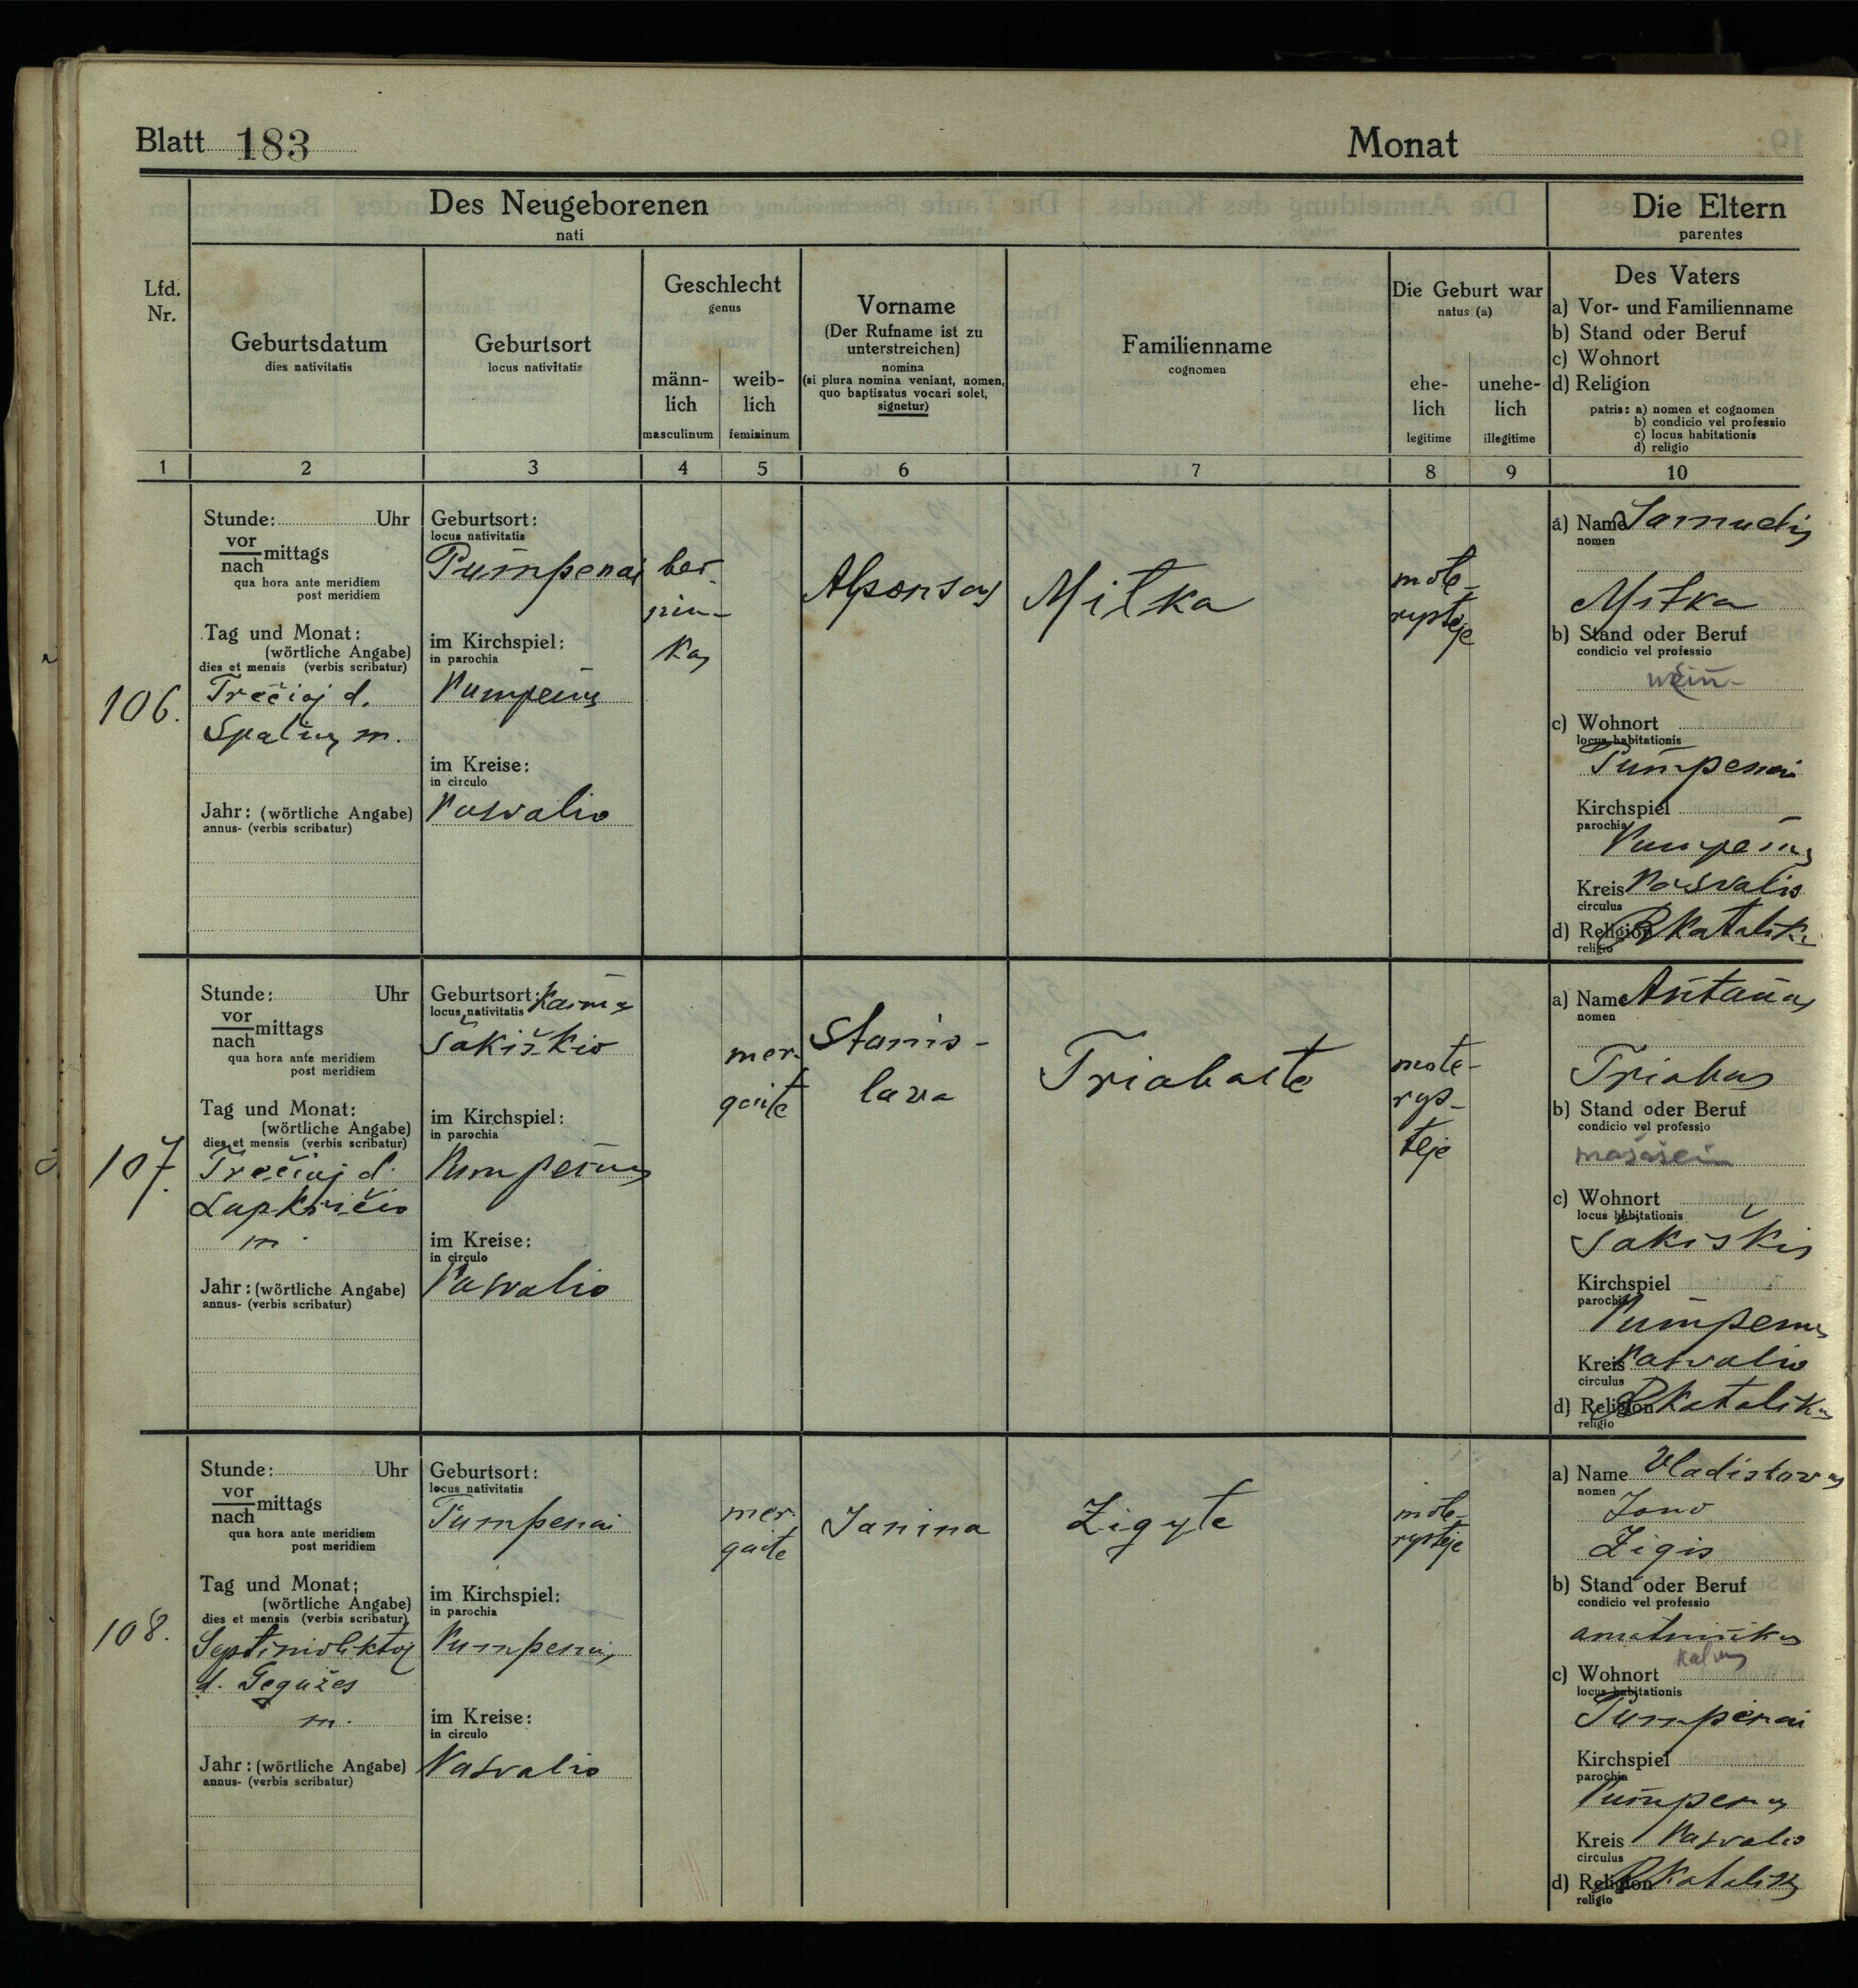 Blatt 183
Monat
Des Neugeborenen
nati
Die Eltern
parentes
Lfd. Nr.
Geburtsdatum
dies nativitatis
Geburtsort
locus nativitatis
Geschlecht
genus
männ-
lich
masculinum
weib-
lich
femininum
Vorname
(Der Rufname ist zu
unterstreichen)
nomina
(si plura nomina veniant, nomen,
quo baptisatus vocari solet,
signetur)
Familienname
cognomen
Die Geburt war
natus (a)
ehe-
lich
legitime
unehe-
lich
illegitime
Des Vaters
a) Vor- und Familienname
b) Stand oder Beruf
c) Wohnort
d) Religion
patris: a) nomen et cognomen
b) condicio vel professio
c) locus habitationis
d) religio
1 2 3 4 5 6 7 8 9 10
106.
Stunde: Uhr
vor
nach mittags
qua hora ante meridiem
post meridiem
Tag und Monat:
(wörtliche Angabe)
dies et mensis (verbis scribatur)
Trečiaj d.
Spalių m.
Jahr: (wörtliche Angabe)
annus- (verbis scribatur)
Geburtsort:
locus nativitatis
Pumpenai
im Kirchspiel:
in parochia
Pumpenų
im Kreise:
in circulo
Pasvalio
ber-
niu-
kas
Alponsas
Mitka
mote-
rystėje
a) Name
nomen
Mitka
b) Stand oder Beruf
condicio vel professio
c) Wohnort
locus habitationis
Pumpenai
Kirchspiel
parochia
Pumpenų
Kreis Pasvalio
circulus
d) Religion R Katalik.
religio
107.
Stunde: Uhr
vor
nach mittags
qua hora ante meridiem
post meridiem
Tag und Monat:
(wörtliche Angabe)
dies et mensis (verbis scribatur)
Trečiaj d.
Lapkričio
m.
Jahr: (wörtliche Angabe)
annus- (verbis scribatur)
Geburtsort: Kaimas
locus nativitatis
Šakiškio
im Kirchspiel:
in parochia
Pumpenų
im Kreise:
in circulo
Pasvalio
mer-
gaitė
Stanis-
lava
Triabaitė
mote-
rys-
tėje
a) Name Antanas
nomen
Triabas
b) Stand oder Beruf
condicio vel professio
c) Wohnort
locus habitationis
Šakiškis
Kirchspiel
parochia
Pumpenų
Kreis Pasvalio
circulus
d) Religion R Katalikas
religio
108.
Stunde: Uhr
vor
nach mittags
qua hora ante meridiem
post meridiem
Tag und Monat:
(wörtliche Angabe)
dies et mensis (verbis scribatur)
Septinioliktoj
d. Gegužės
m.
Jahr: (wörtliche Angabe)
annus- (verbis scribatur)
Geburtsort:
locus nativitatis
Pumpenai
im Kirchspiel:
in parochia
Pumpenų
im Kreise:
in circulo
Pasvalio
mer-
gaitė
Janina
Žigytė
mote-
rystėje
a) Name Vladislovas
nomen
Jono
Žigis
b) Stand oder Beruf
condicio vel professio
amatninkas
kalvis
c) Wohnort
locus habitationis
Pumpenai
Kirchspiel
parochia
Pumpenų
Kreis Pasvalio
circulus
d) Religion R Katalik
religio